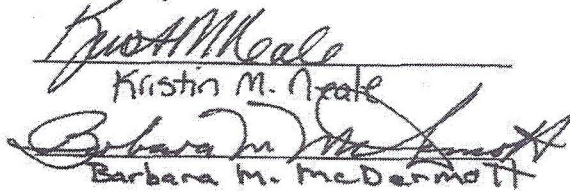 Krist M Neale
Kristin M. Neale
Barbara M. McDermott
Barbara M. McDermott